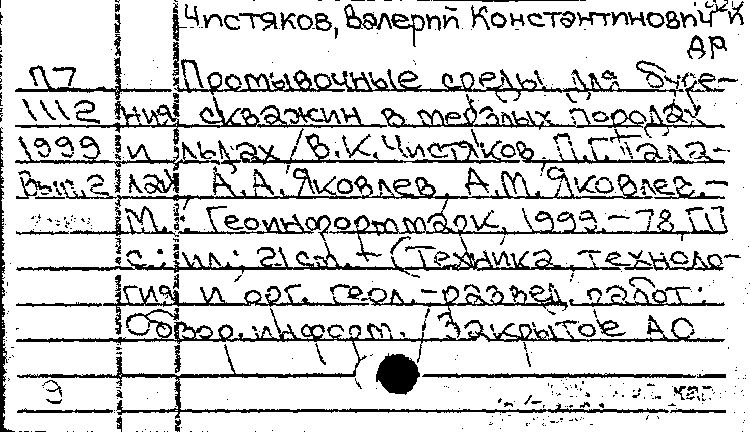 Чистяков, Валерий Константинович и
др
П7 Промывочные среды для буре-
1112 ния скважин в мерзлых породах
1999 и льдах / В.К. Чистяков, П.Г. Тала-
Вып.2 лай, А.А. Яковлев, А.М. Яковлев. -
М. : Геоинформмарк, 1999. - 78, [1]
с.: ил.; 21 cm. + (Техника, техноло-
гия и орг. геол. - развед. работ:
Обзор. информ. / Закрытое АО
9